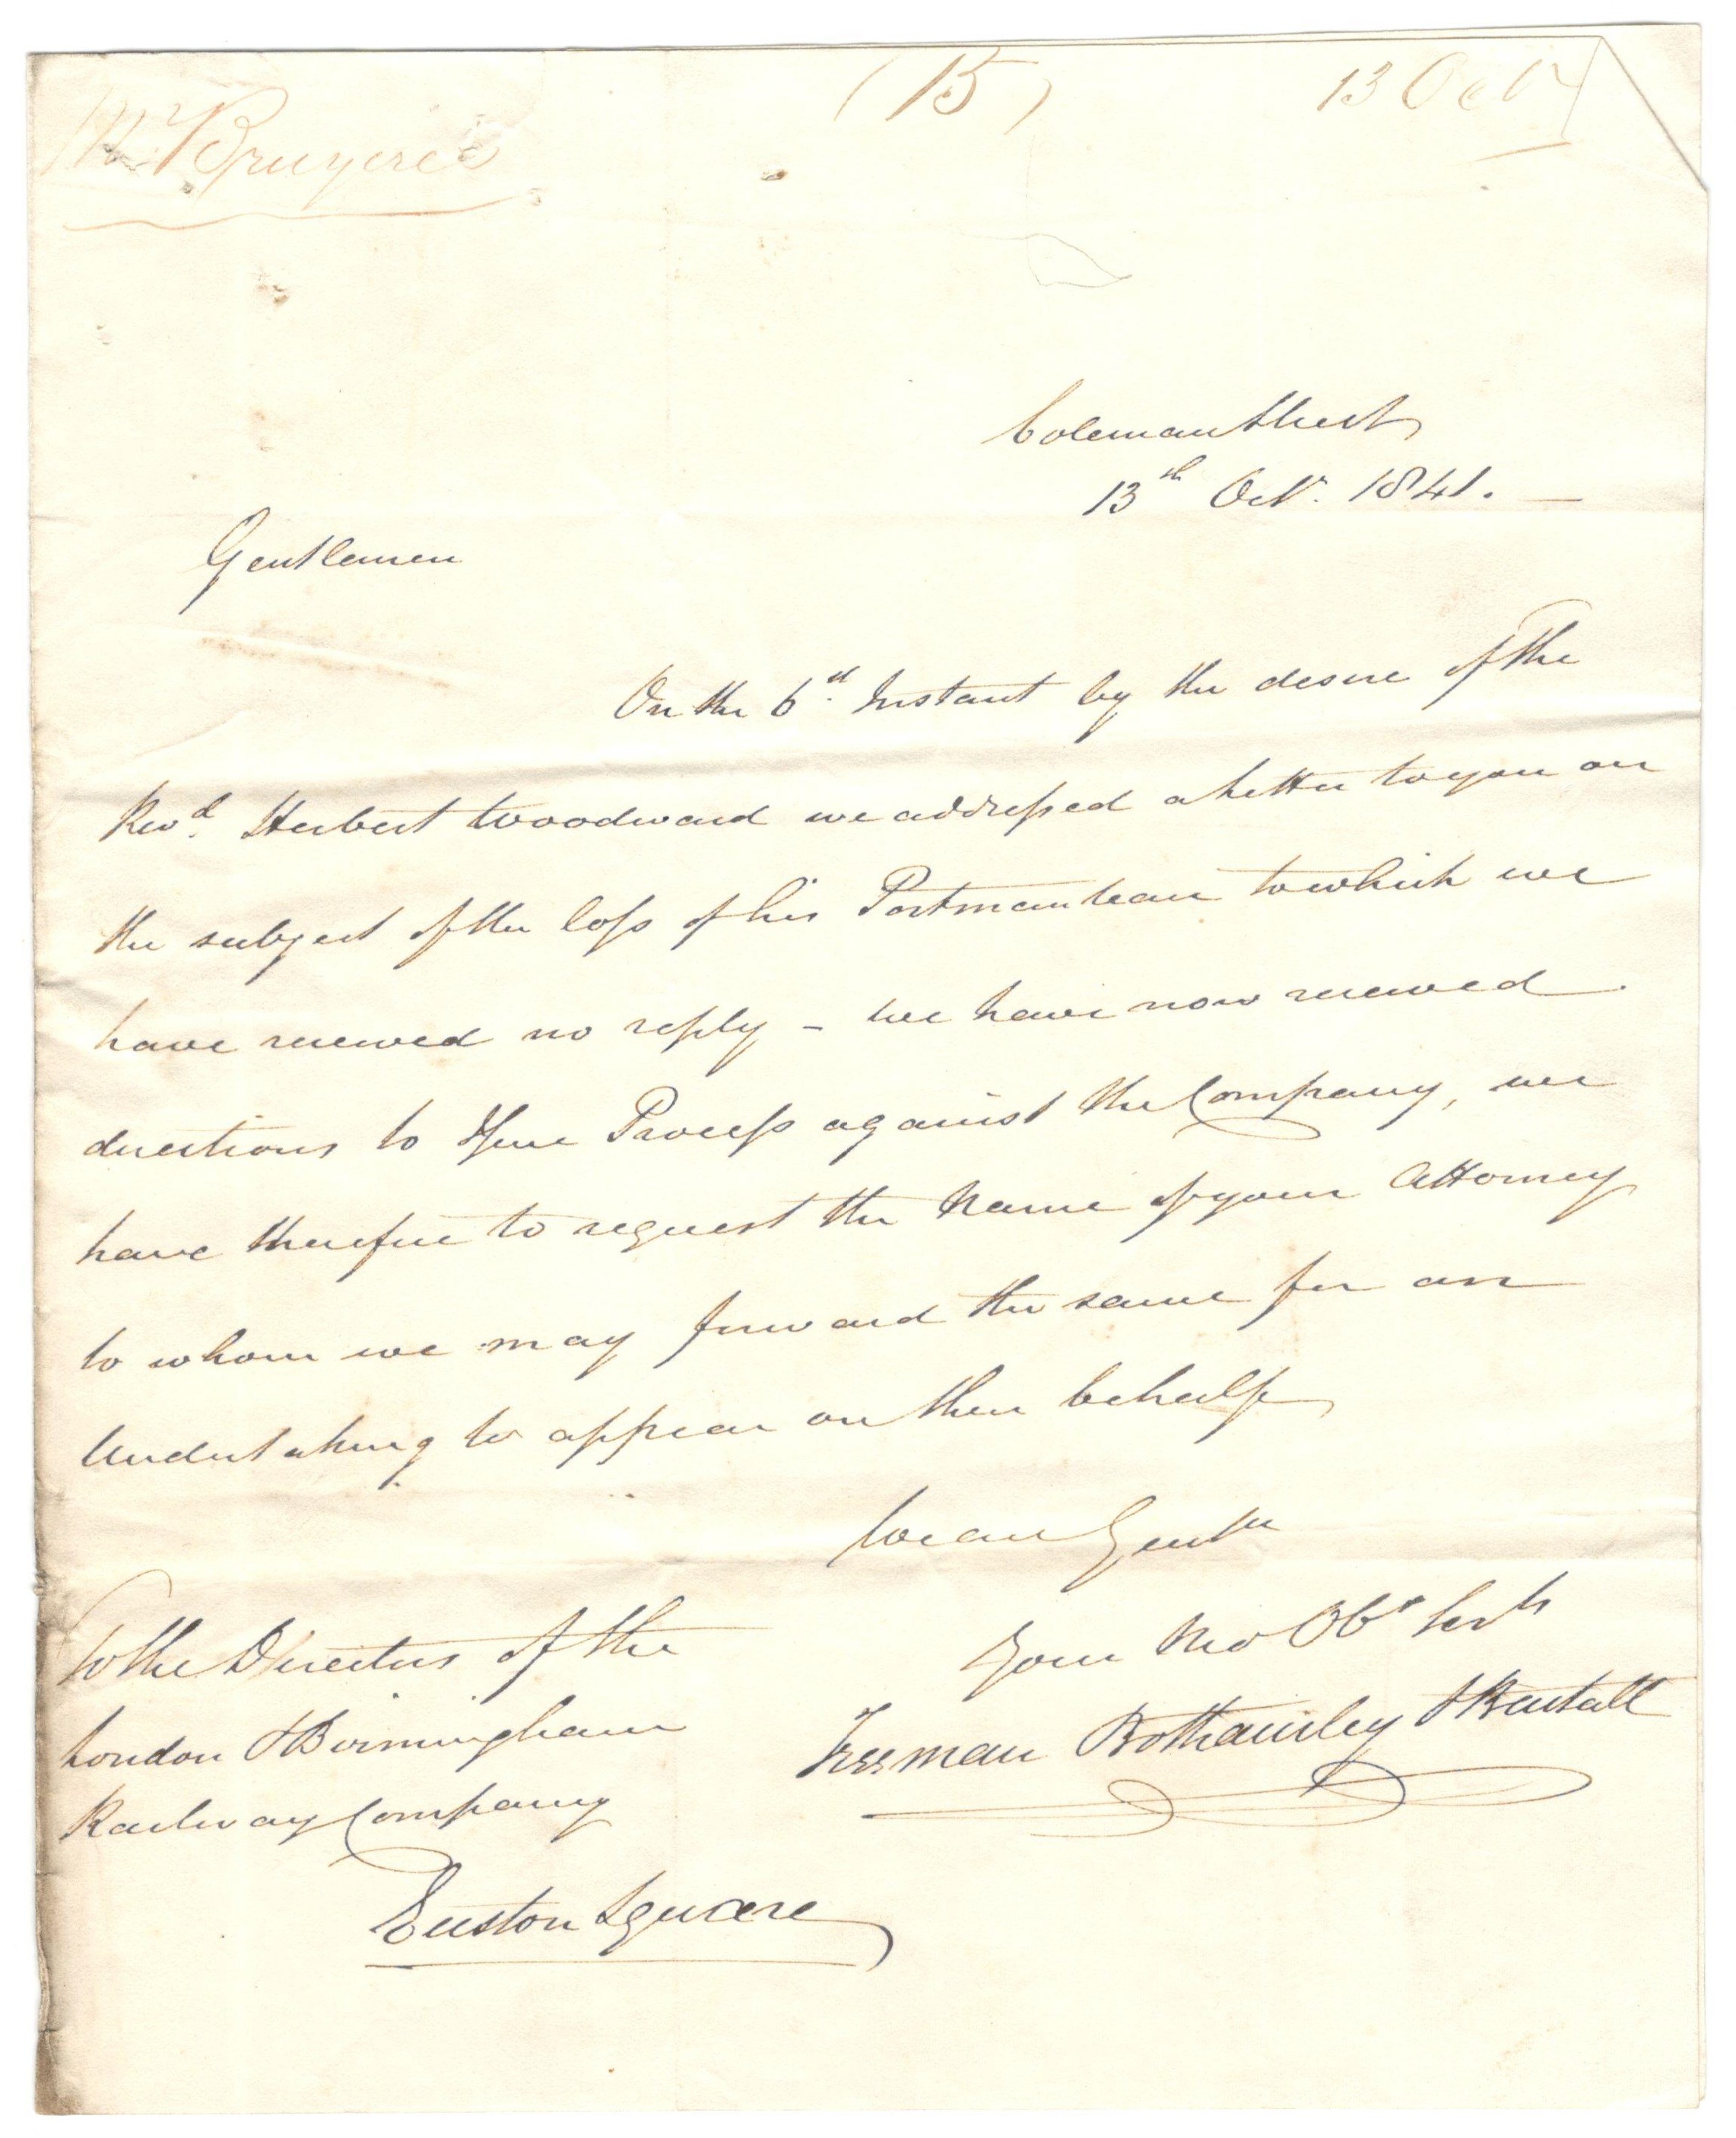 Mr Bruyeres
(15)
13 Oct
Coleman Street
13th Octr. 1841.
Gentlemen
On the 6th Instant by the desire of the
Revd. Herbert Woodward we addressed a Letter to you on
the subject of the loss of his Portmanteau to which we
have received no reply – We have now received
directions to Issue Process against the Company, we
have therefore to request the Name of your Attorney
to whom we may forward the same for an
Undertaking to appear on their behalf
We are Gentn
Your Mo Obt Servts
Freeman Bothamley &
To the Directors of the
London & Birmingham
Railway Company
Euston Square